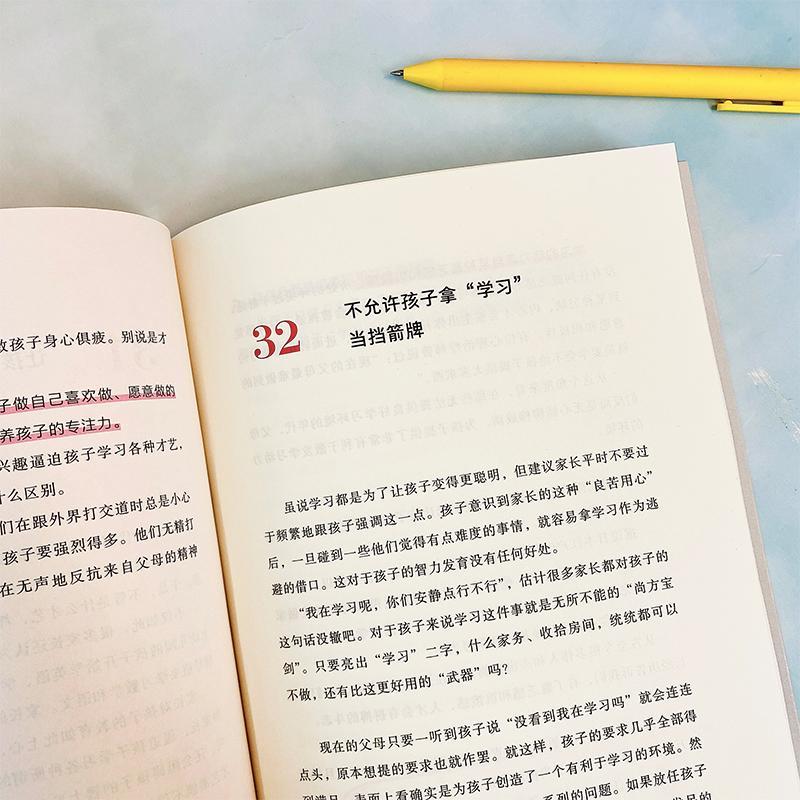 故孩子身心俱疲。别说是才
子做自己喜欢做、愿意做的
养孩子的专注力。
兴趣逼迫孩子学习各种才艺，
什么区别。
们在跟外界打交道时总是小心
孩子要强烈得多。他们无精打
在无声地反抗来自父母的精神
32
不允许孩子拿“学习”
当挡箭牌
虽说学习都是为了让孩子变得更聪明，但建议家长平时不要过
于频繁地跟孩子强调这一点。孩子意识到家长的这种“良苦用心”
后，一旦碰到一些他们觉得有点难度的事情，就容易拿学习作为逃
避的借口。这对于孩子的智力发育没有任何好处。
“我在学习呢，你们安静点行不行”，估计很多家长都对孩子的
这句话没辙吧。对于孩子来说学习这件事就是无所不能的“尚方宝
剑”。只要亮出“学习”二字，什么家务、收拾房间，统统都可以
不做，还有比这更好用的“武器”吗？
现在的父母只要一听到孩子说“没看到我在学习吗”就会连连
点头，原本想提的要求也就作罢。就这样，孩子的要求几乎全部得
到满足，表面上看确实是为孩子创造了一个有利于学习的环境。然
系列的问题。如果放任孩子